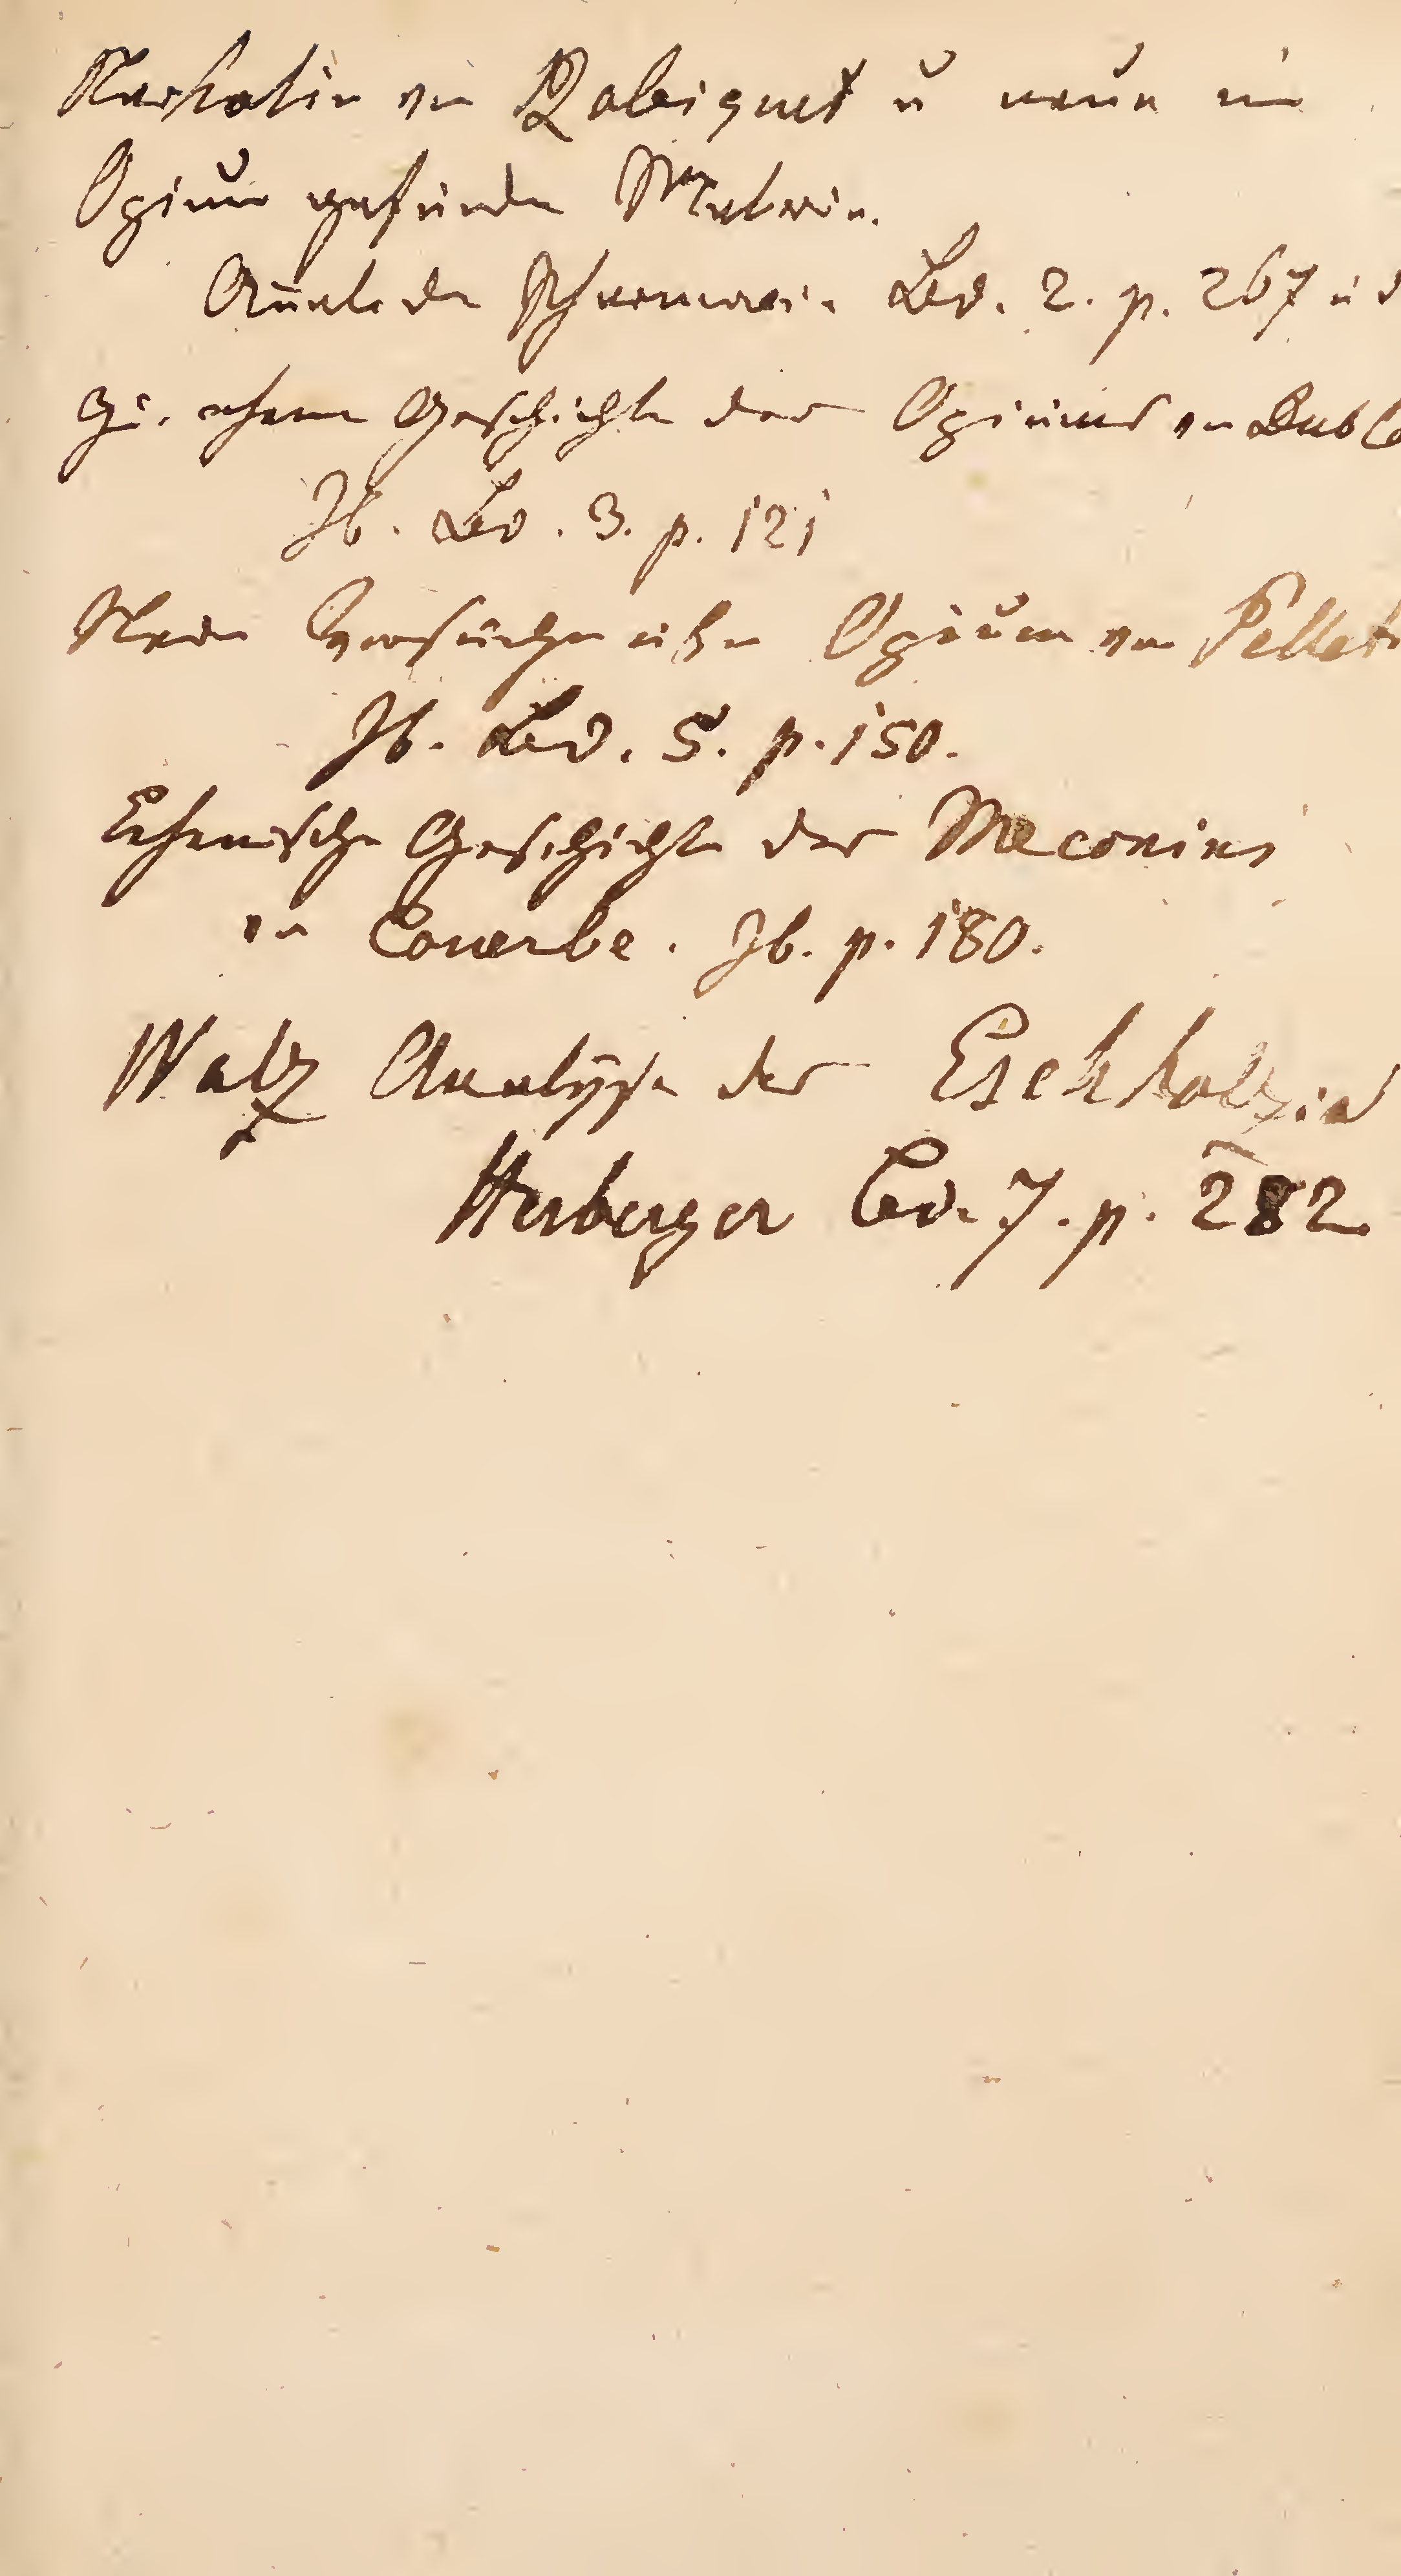 von Robiquet u neue im
Opium gefunden
Annale der Pharmacie Bd. 2. p. 267 u
chem Geschichte des Opiums von
Ib. Bd. 3. p. 121
Neue Versuche über Opium von Pellet
Ib. Bd. 5. p. 150.
Chemische Geschichte des Meconins
von Couerbe. Ib. p. 180.
Walz Analyse der Eschholzia
Herberger Bd. 7. p. 282